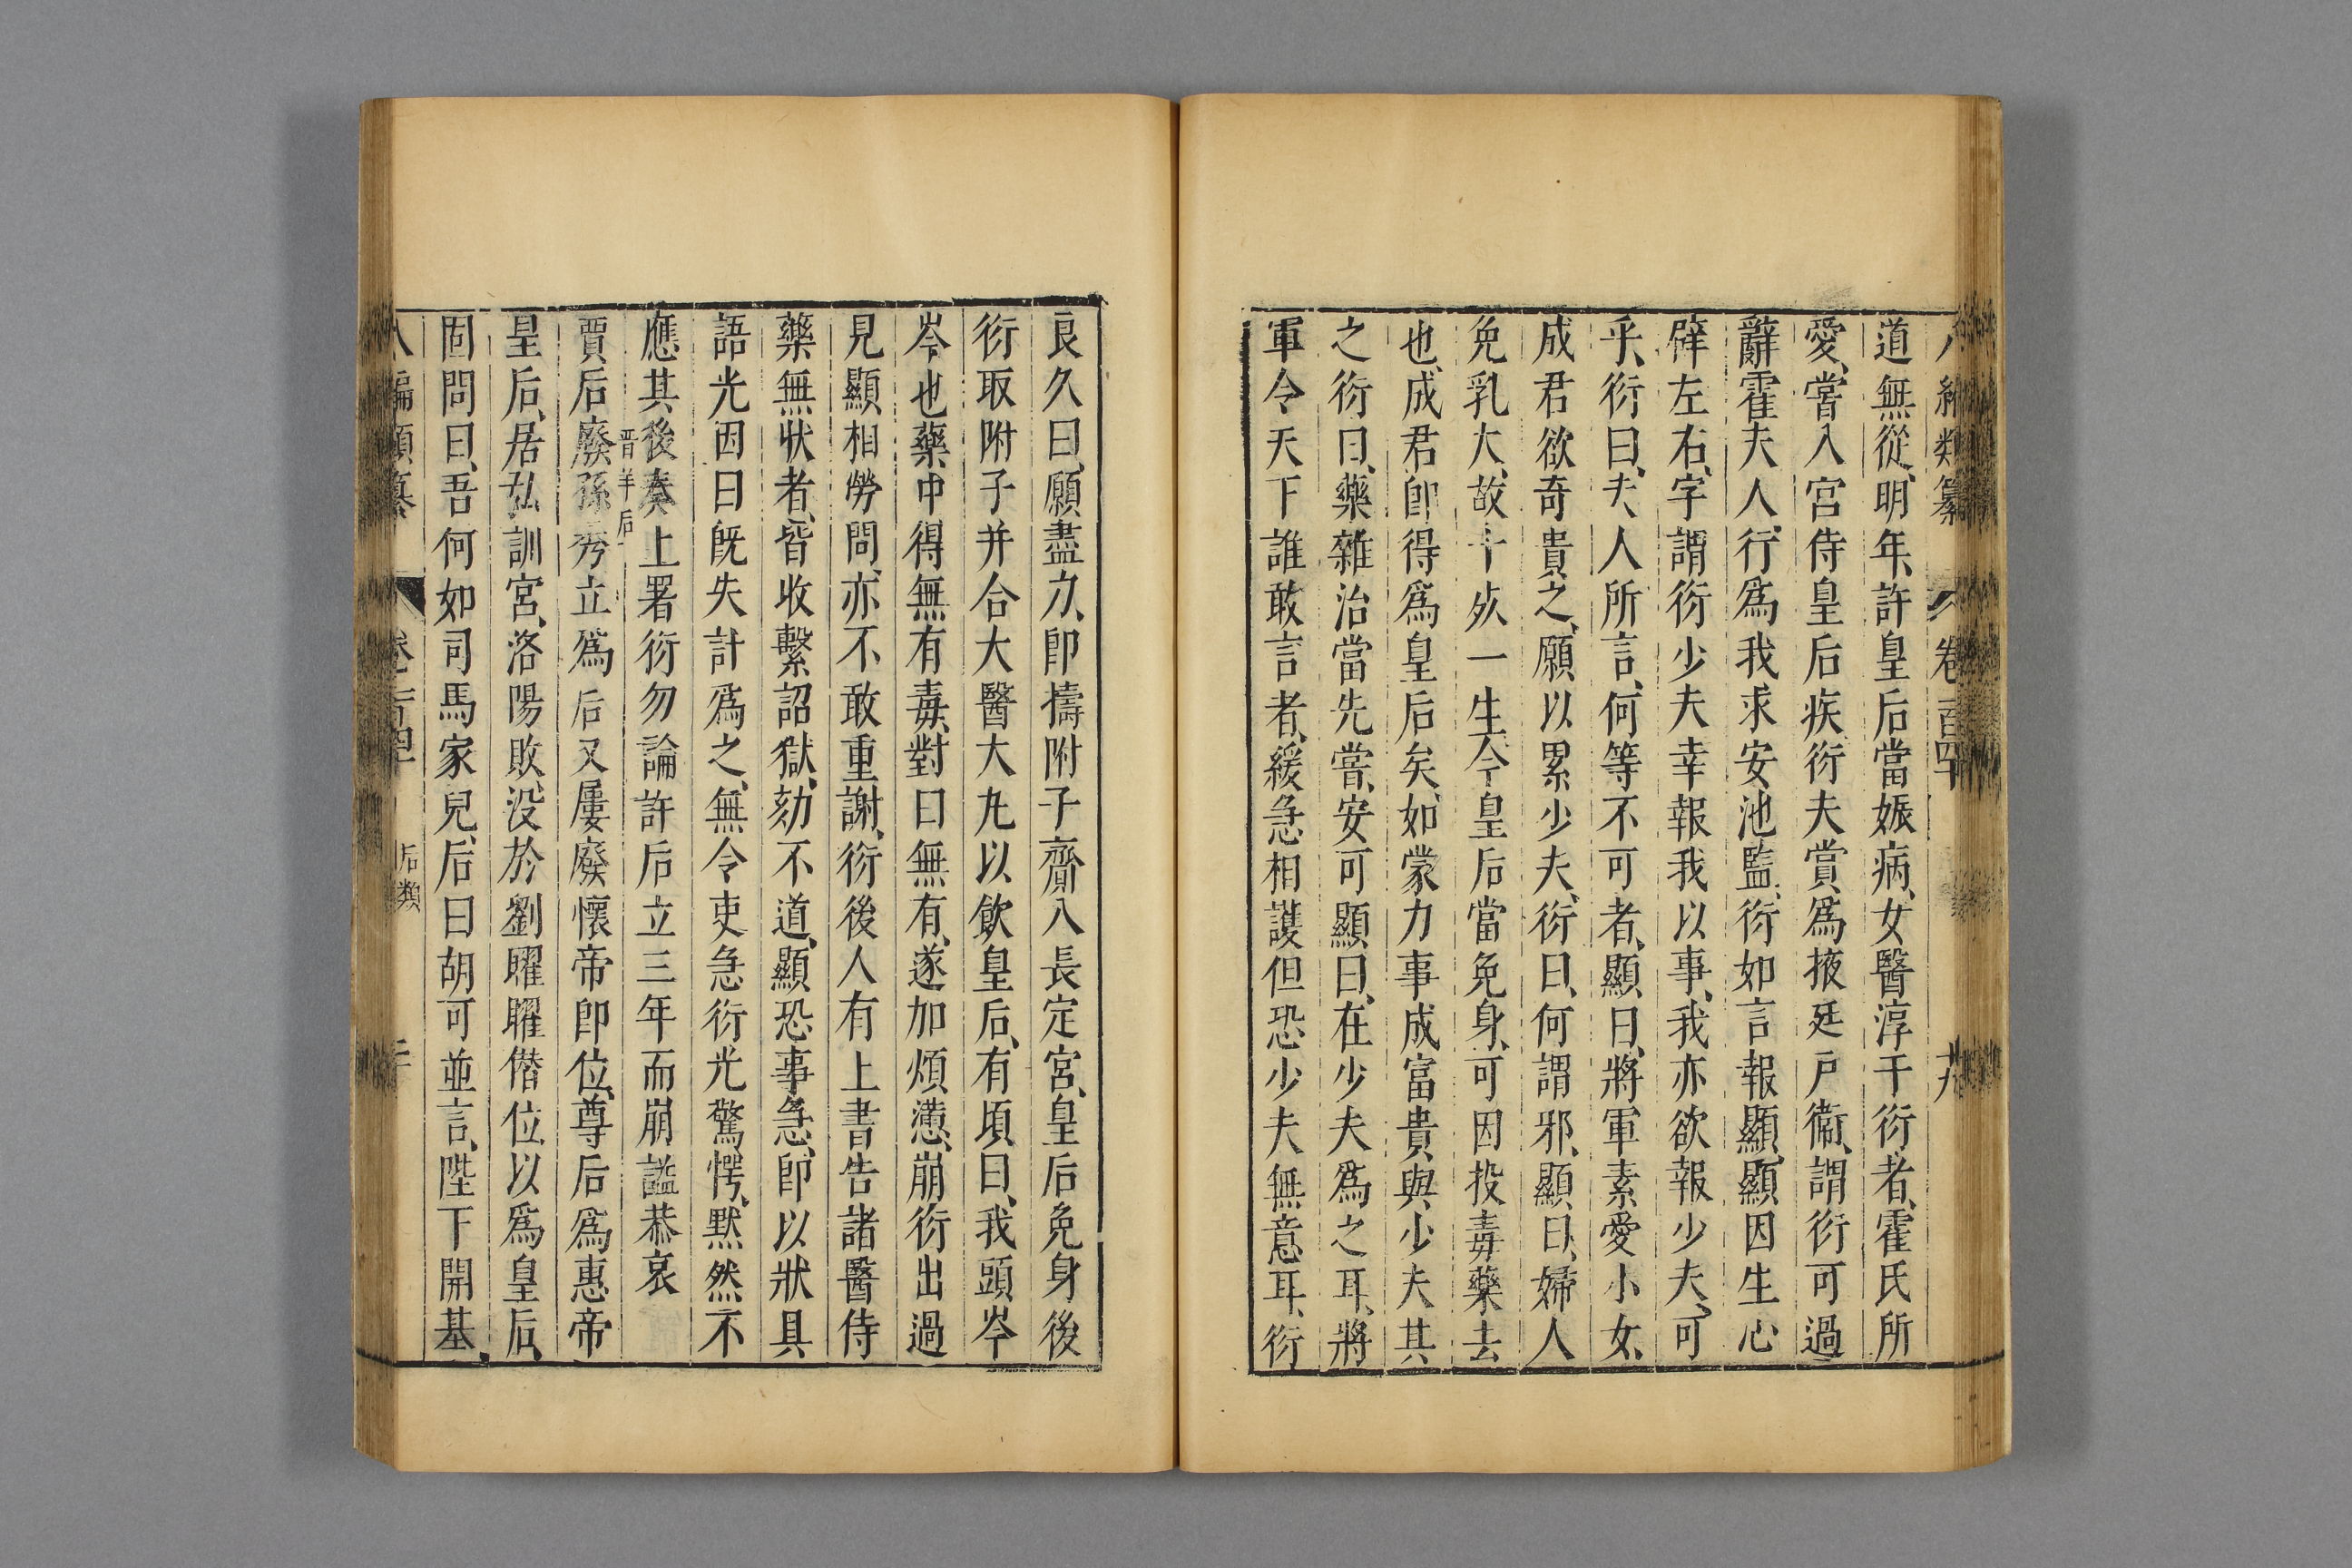 八編類纂 卷一百四 十九
道無從、明年、許皇后當娠病、女醫淳于衍者、霍氏所
愛、嘗入宮侍皇后疾、衍夫賞爲掖廷戸衞、謂衍可過
辭霍夫人、行爲我求安池監、衍如言報顯、顯因生心
辟左右、字謂衍少夫幸報我以事、我亦欲報少夫、可
乎、衍曰、夫人所言、何等不可者、顯曰、將軍素愛小女、
成君欲奇貴之、願以累少夫、衍曰、何謂邪、顯曰、婦人
免乳大、故十死一生、今皇后當免身、可因投毒藥去
也、成君卽得爲皇后矣、如蒙力事成富貴與少夫其
之、衍曰、藥雜治當先嘗、安可顯曰、在少夫爲之耳、將
軍令天下誰敢言者、緩急相護但恐少夫無意耳、衍
良久曰、願盡力、卽擣附子齎入長定宮、皇后免身後
衍取附子并合大醫大丸以飲皇后、有頃曰、我頭岑
岑也藥中得無有毒、對曰無有、遂加煩懣、崩衍出過
見顯相勞問、亦不敢重謝、衍後人有上書告諸醫侍
藥無狀者、皆收繫詔獄、劾不道、顯恐事急、卽以狀具
語光因曰旣失計爲之、無令吏急衍光驚愕、默然不
應其後奏上署衍勿論許后立三年而崩謚恭哀
晋羊后
賈后廢孫秀立爲后又屢廢懷帝卽位、尊后爲惠帝
皇后、居弘訓宮、洛陽敗、没於劉曜曜僭位以爲皇后、
固問曰、吾何如司馬家兒、后曰胡可並言、陛下開基、
八編類纂 卷一百四 后類 二十